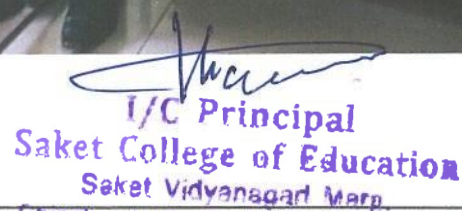 I/C Principal
Saket College of Education
Saket Vidyanagari Marg,